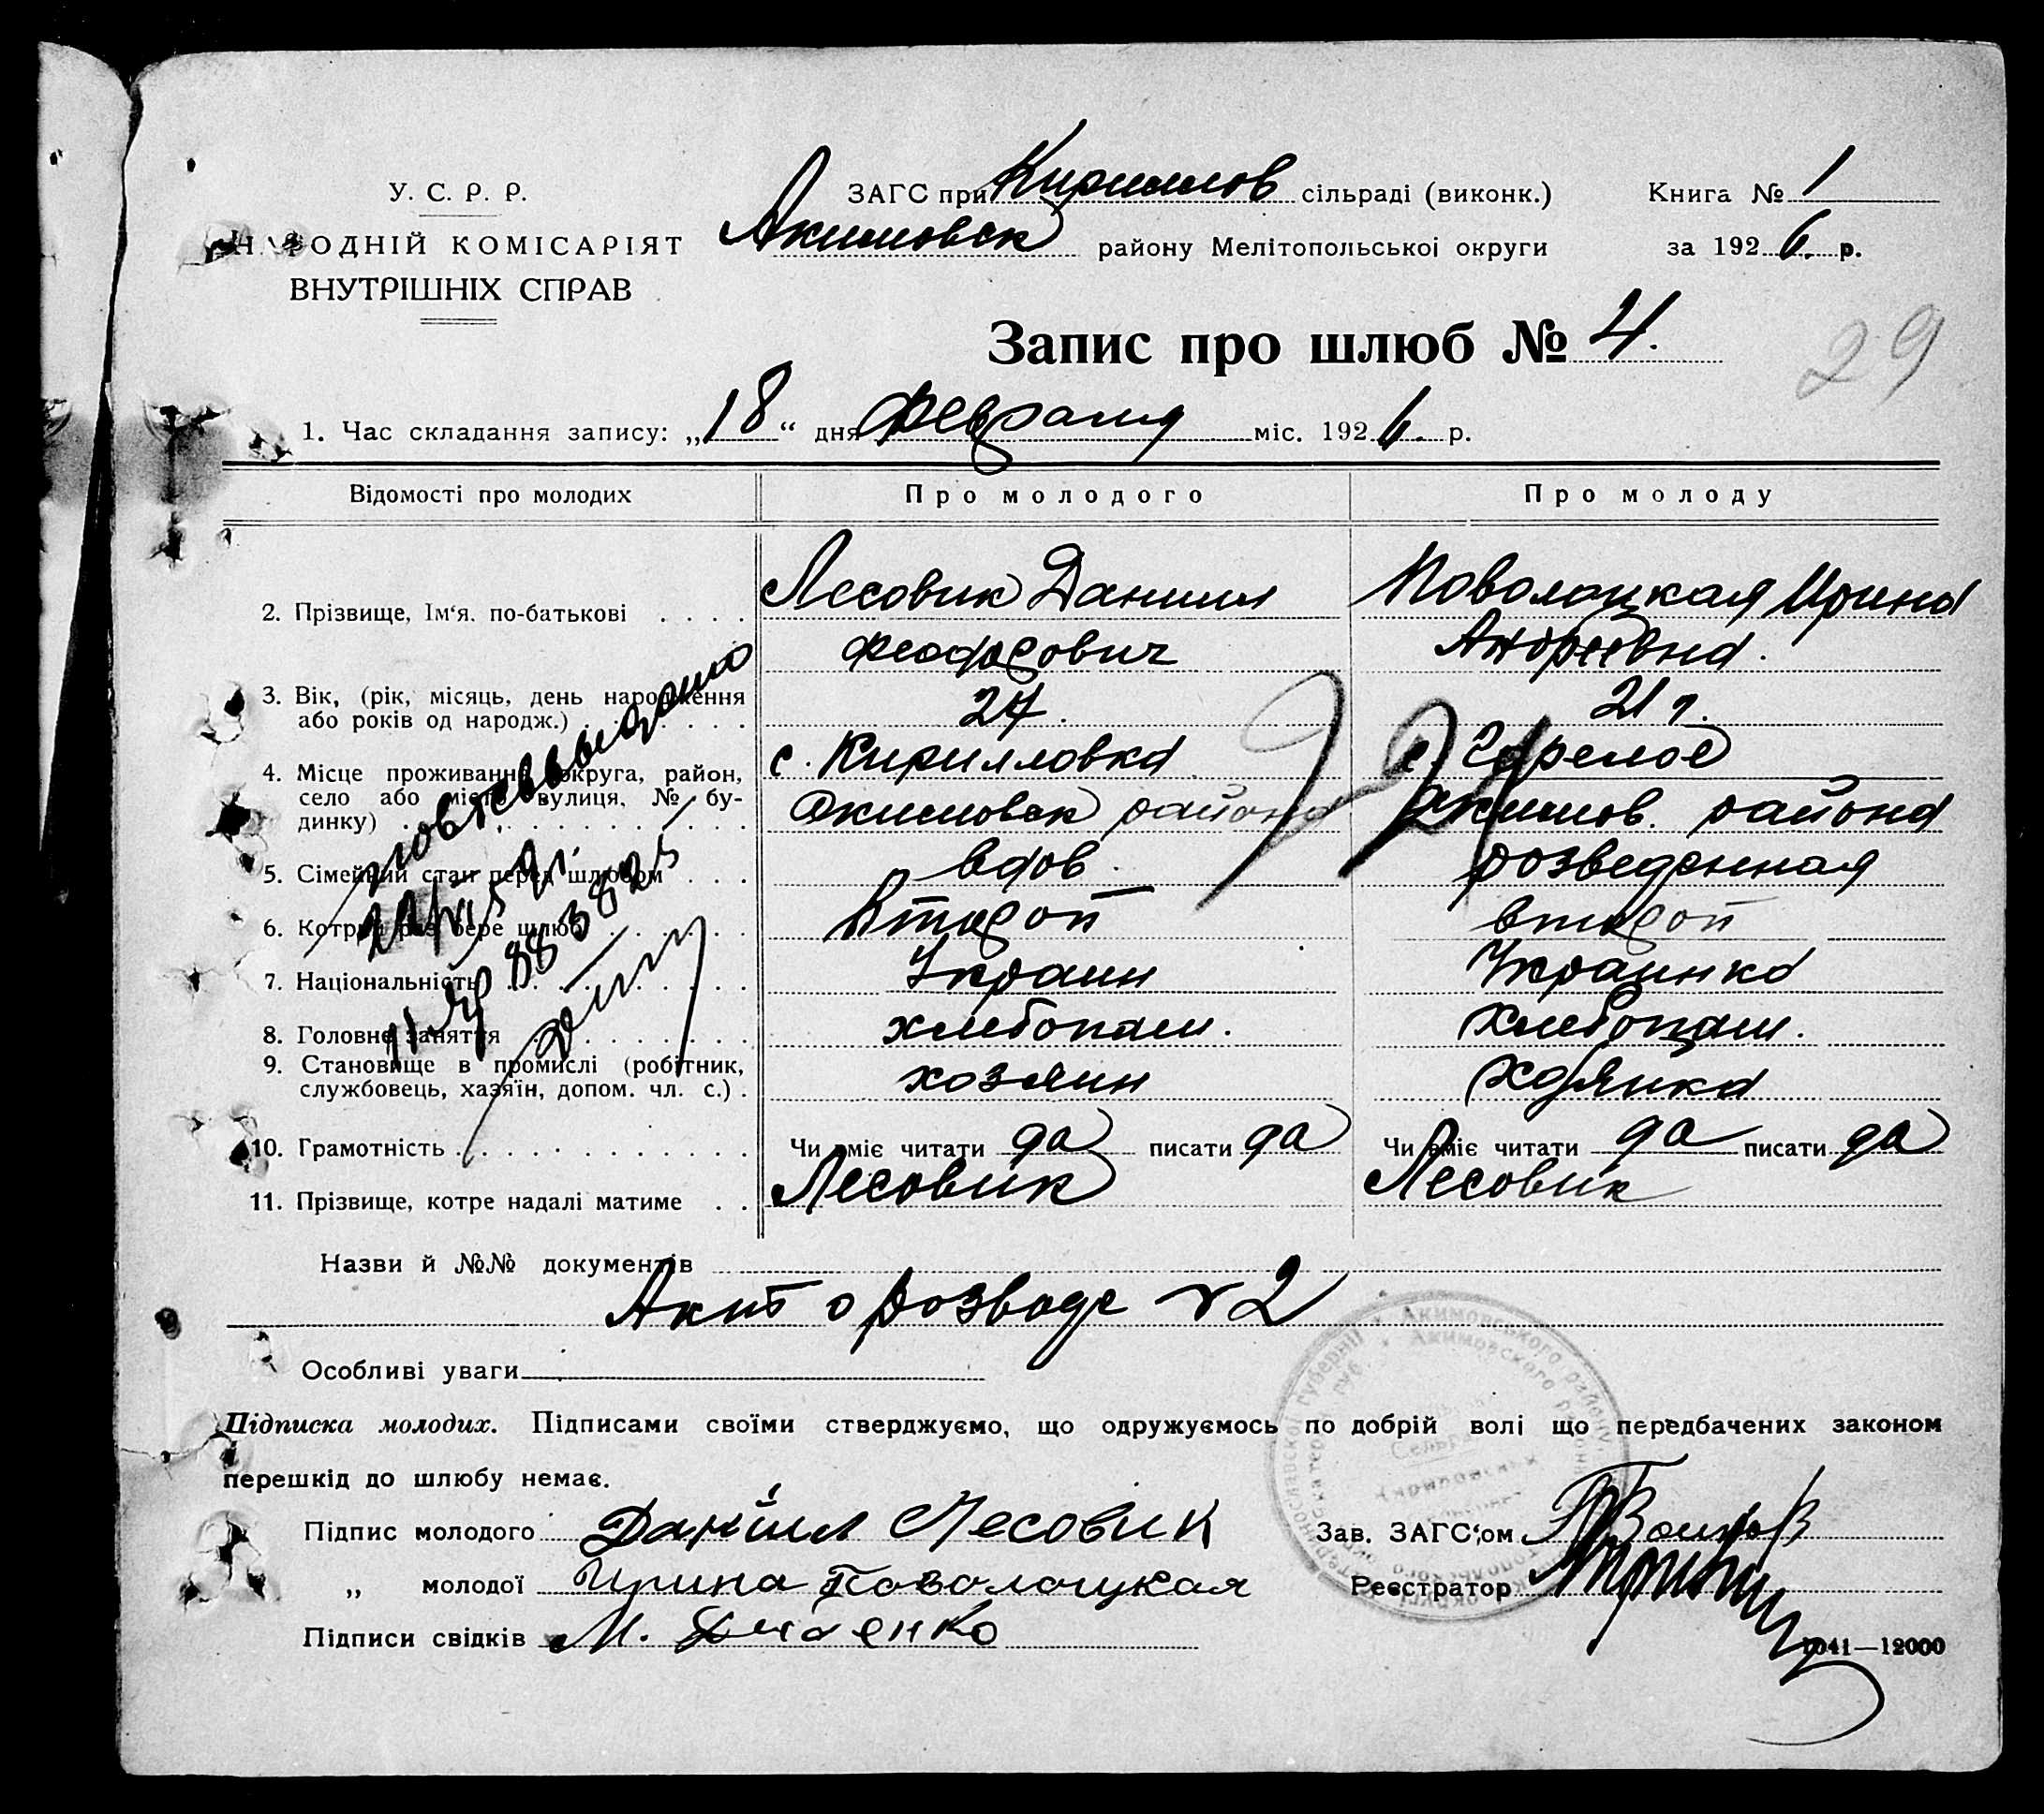 У. С. Р. Р.
НАРОДНІЙ КОМІСАРІЯТ
ВНУТРІШНІХ СПРАВ
ЗАГС при Кириллов сільраді (виконк.)
Акимовск району Мелітопольської округи
Книга № 1
за 1926. р.
Запис про шлюб № 4.
29
1. Час складання запису: „18“ дня февраля міс. 1926. р.
Відомості про молодих Про молодого Про молоду
2. Прізвище, Ім‘я. по-батькові Лесовик Даниил Поволоцкая Ирина
Феодорович Андреевна.
3. Вік, (рік, місяць, день народження 27. 21 г.
або років од народж.)
4. Місце проживання (округа, район, с. Кирилловка с. Горелое
село або місто, вулиця, № бу- Акимовск района Акимов. района
динку)
5. Сімейний стан перед шлюбом вдов. розведенная
6. Котрий раз бере шлюб Второй второй
7. Національність Украин Украинка
8. Головне заняття хлебопаш. хлебопаш.
9. Становище в промислі (робітник, хозяин хозяйка
службовець, хазяїн, допом. чл. с.)
10. Грамотність Чи вміє читати да писати да Чи вміє читати да писати да
11. Прізвище, котре надалі матиме Лесовик Лесовик
Назви й №№ документів
Акт о розводе № 2
Особливі уваги
Підписка молодих. Підписами своїми стверджуємо, що одружуємось по добрій волі що передбачених законом
перешкід до шлюбу немає.
Підпис молодого Даниил Лесовик Зав. ЗАГС‘ом
„ молодої Ирина Поволоцкая Реєстратор
Підписи свідків М.
1041—12000